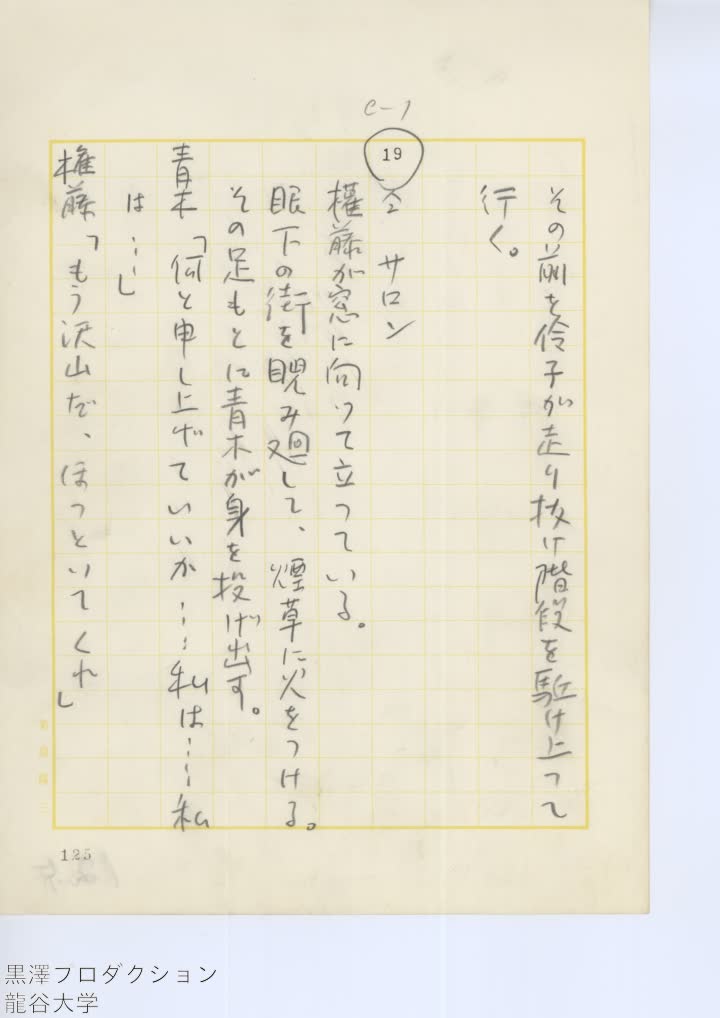 その前を伶子が走り抜け階段を駈け上って
行く。
C-1
19
仝 サロン
権藤が窓に向って立っている。
眼下の街を睨み廻して、煙草に火をつける。
その足もとに青木が身を投げ出す。
青木「何と申し上げていいか……私は……私
は……」
権藤「もう沢山だ、ほっといてくれ」
125
黒澤プロダクション
龍谷大学